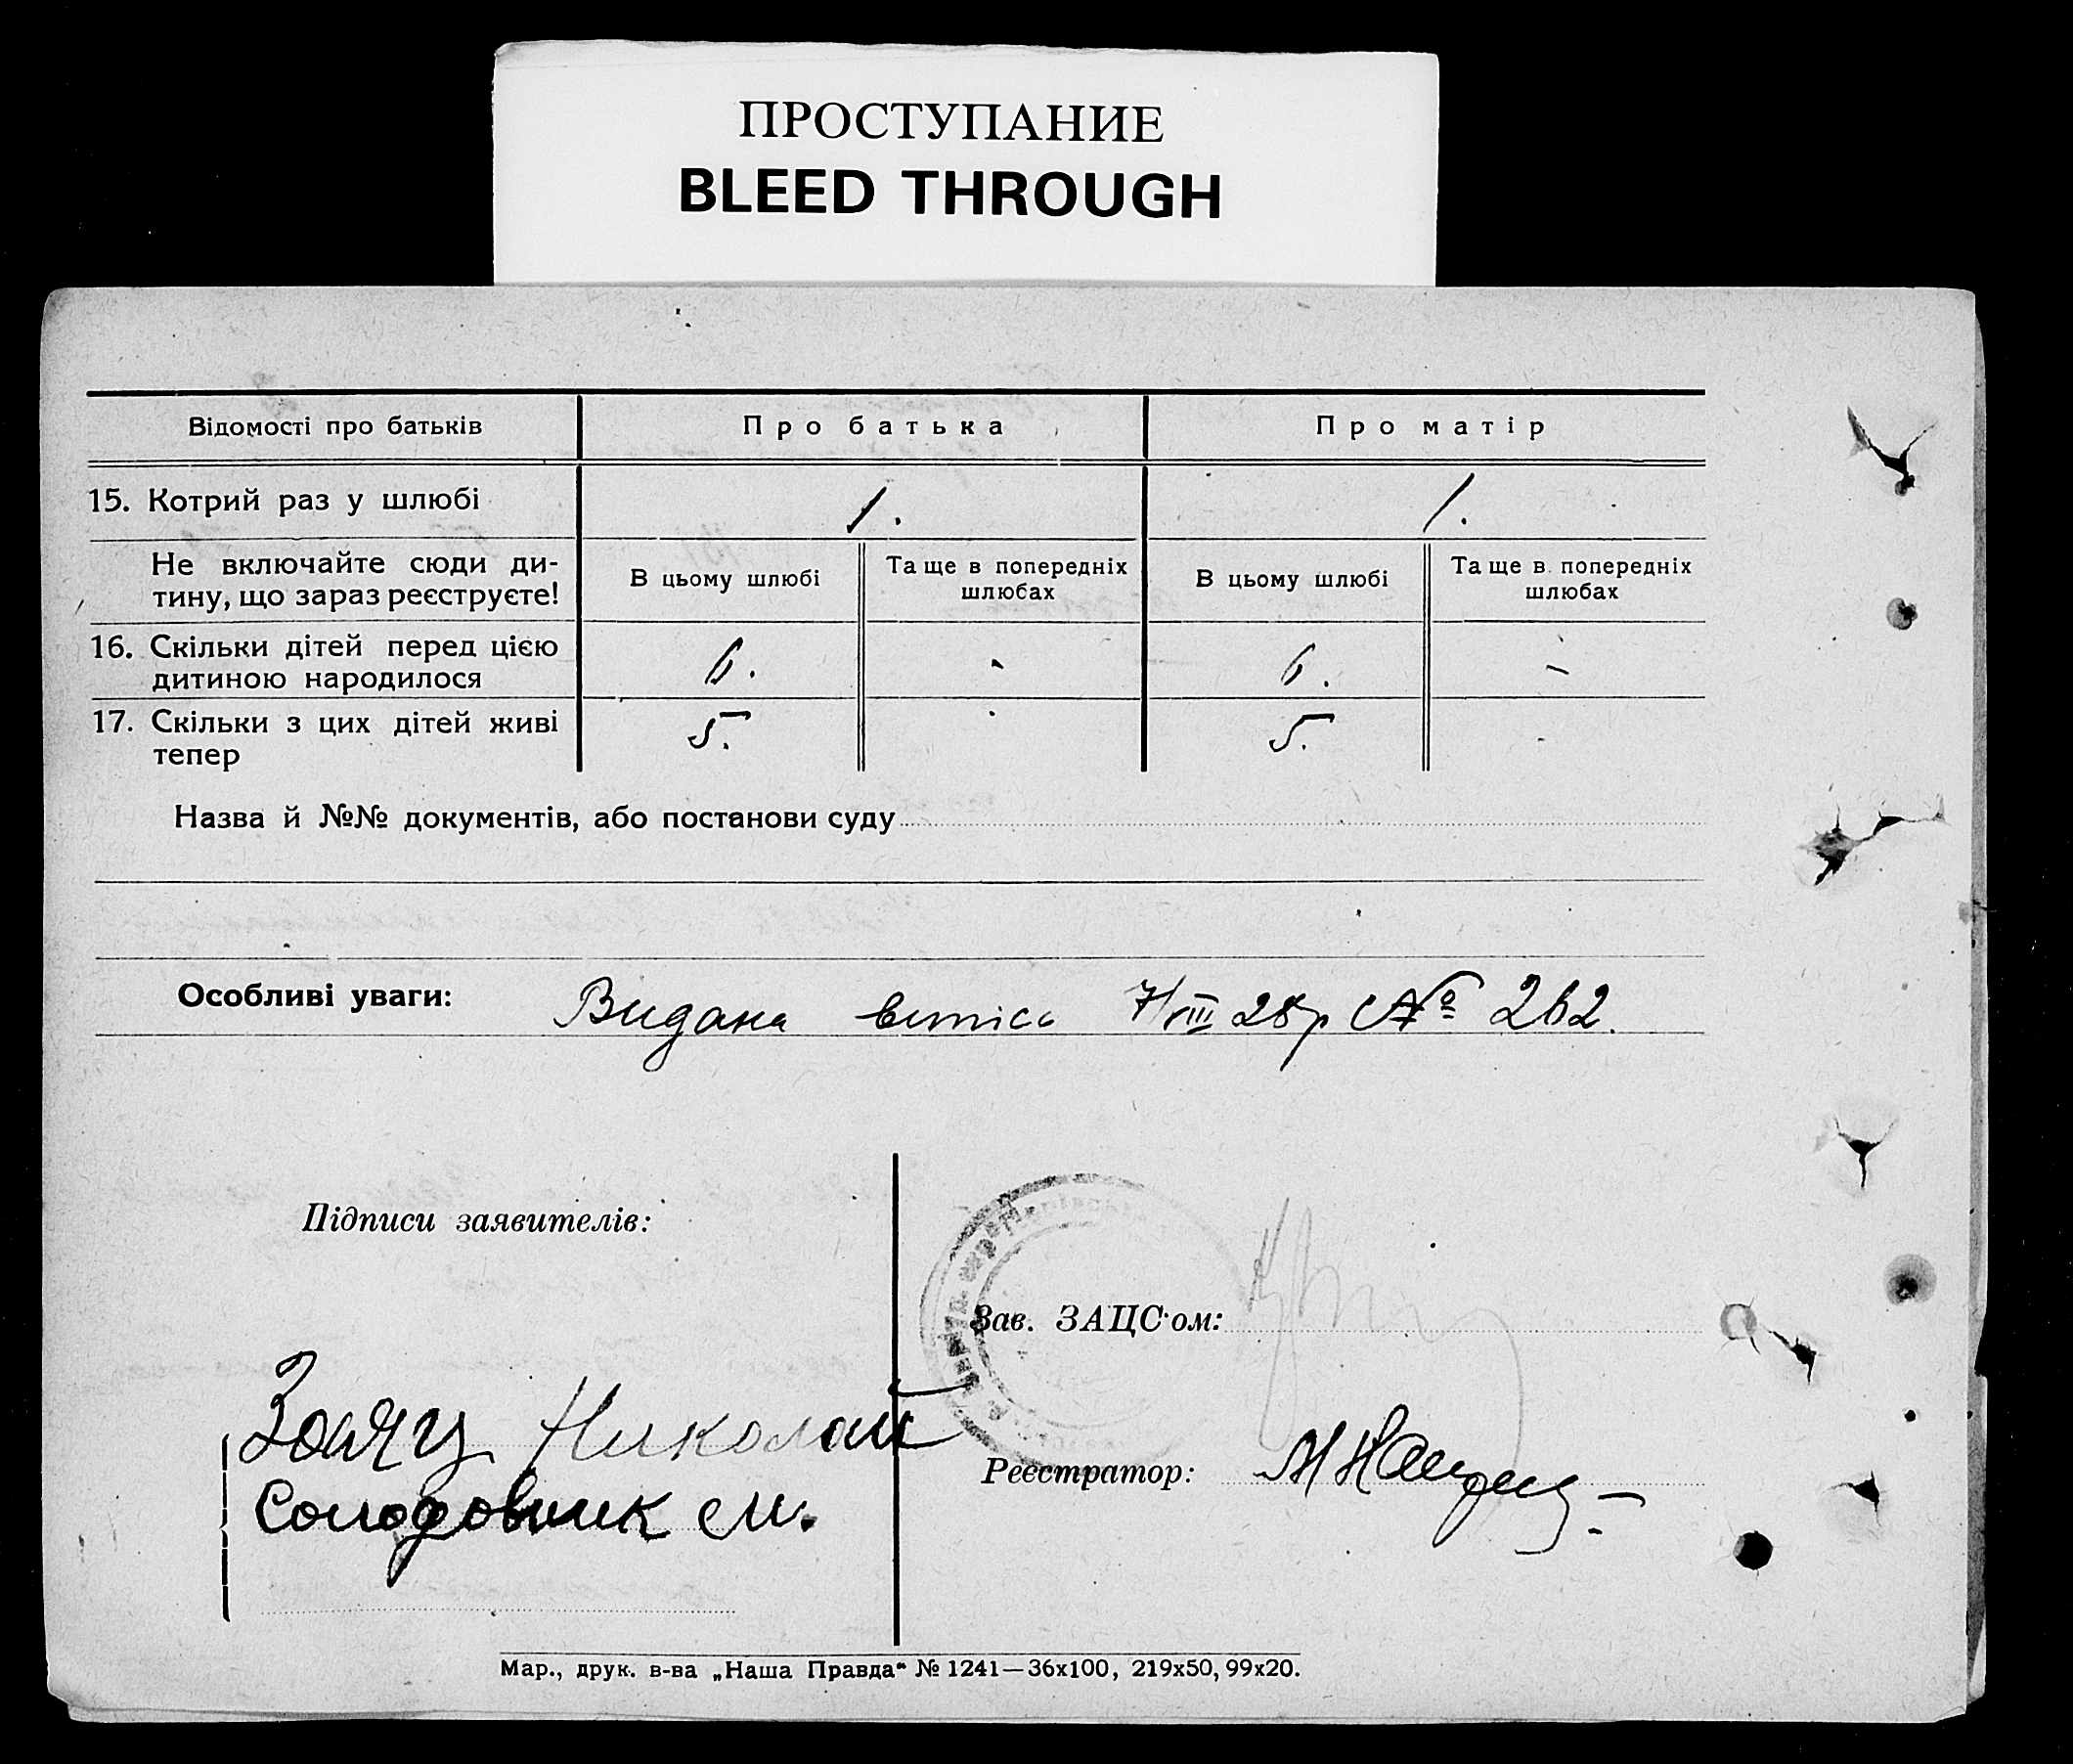 ПРОСТУПАНИЕ
BLEED THROUGH
Відомості про батьків
Про батька
Про матір
15. Котрий раз у шлюбі
1.
1.
Не включайте сюди ди-
тину, що зараз реєструєте!
В цьому шлюбі
Та ще в попередніх
шлюбах
В цьому шлюбі
Та ще в попередніх
шлюбах
16. Скільки дітей перед цією
дитиною народилося
6.
-
6.
-
17. Скільки з цих дітей живі
тепер
5.
5.
-
Назва й №№ документів, або постанови суду
Особливі уваги: Видана випісь 7/III 28р № 262.
Підписи заявителів:
Зав. ЗАЦС'ом:
Заяц Николай
Солодовник М.
Реєстратор:
Мар., друк. в-ва „Наша Правда“ № 1241—36х100, 219х50, 99х20.